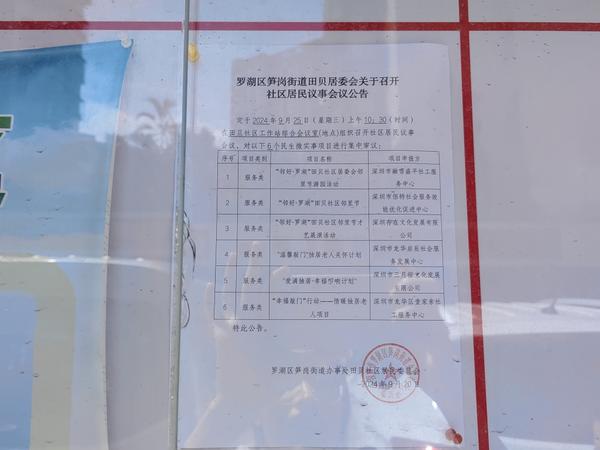 罗湖区笋岗街道田贝居委会关于召开
社区居民议事会议公告
定于2024年9月25日(星期三)上午10:30(时间)
在田贝社区工作站综合会议室(地点)组织召开社区居民议事
会议、对以下6个民生微实事项目进行集中审议:
序号 项目类别 项目名称 项目申报方
1 服务类 “邻好·罗湖”田贝社区居委会邻里节游园活动 深圳市融雪盛平社工服务中心
2 服务类 “邻好·罗湖”田贝社区邻里节 深圳市佰特社会服务效能优化促进中心
3 服务类 “邻好·罗湖”田贝社区邻里节才艺展演活动 深圳存在文化发展有限公司
4 服务类 “温馨敲门”独居老人关怀计划 深圳市龙华启辰社会服务发展中心
5 服务类 “爱满独居·幸福叩响计划” 深圳市三月桓文化发展有限公司
6 服务类 “幸福敲门”行动——情暖独居老人项目 深圳市龙华区壹家亲社工服务中心
特此公告。
罗湖区笋岗街道办事处田贝社区居民委员会
2024年9月20日